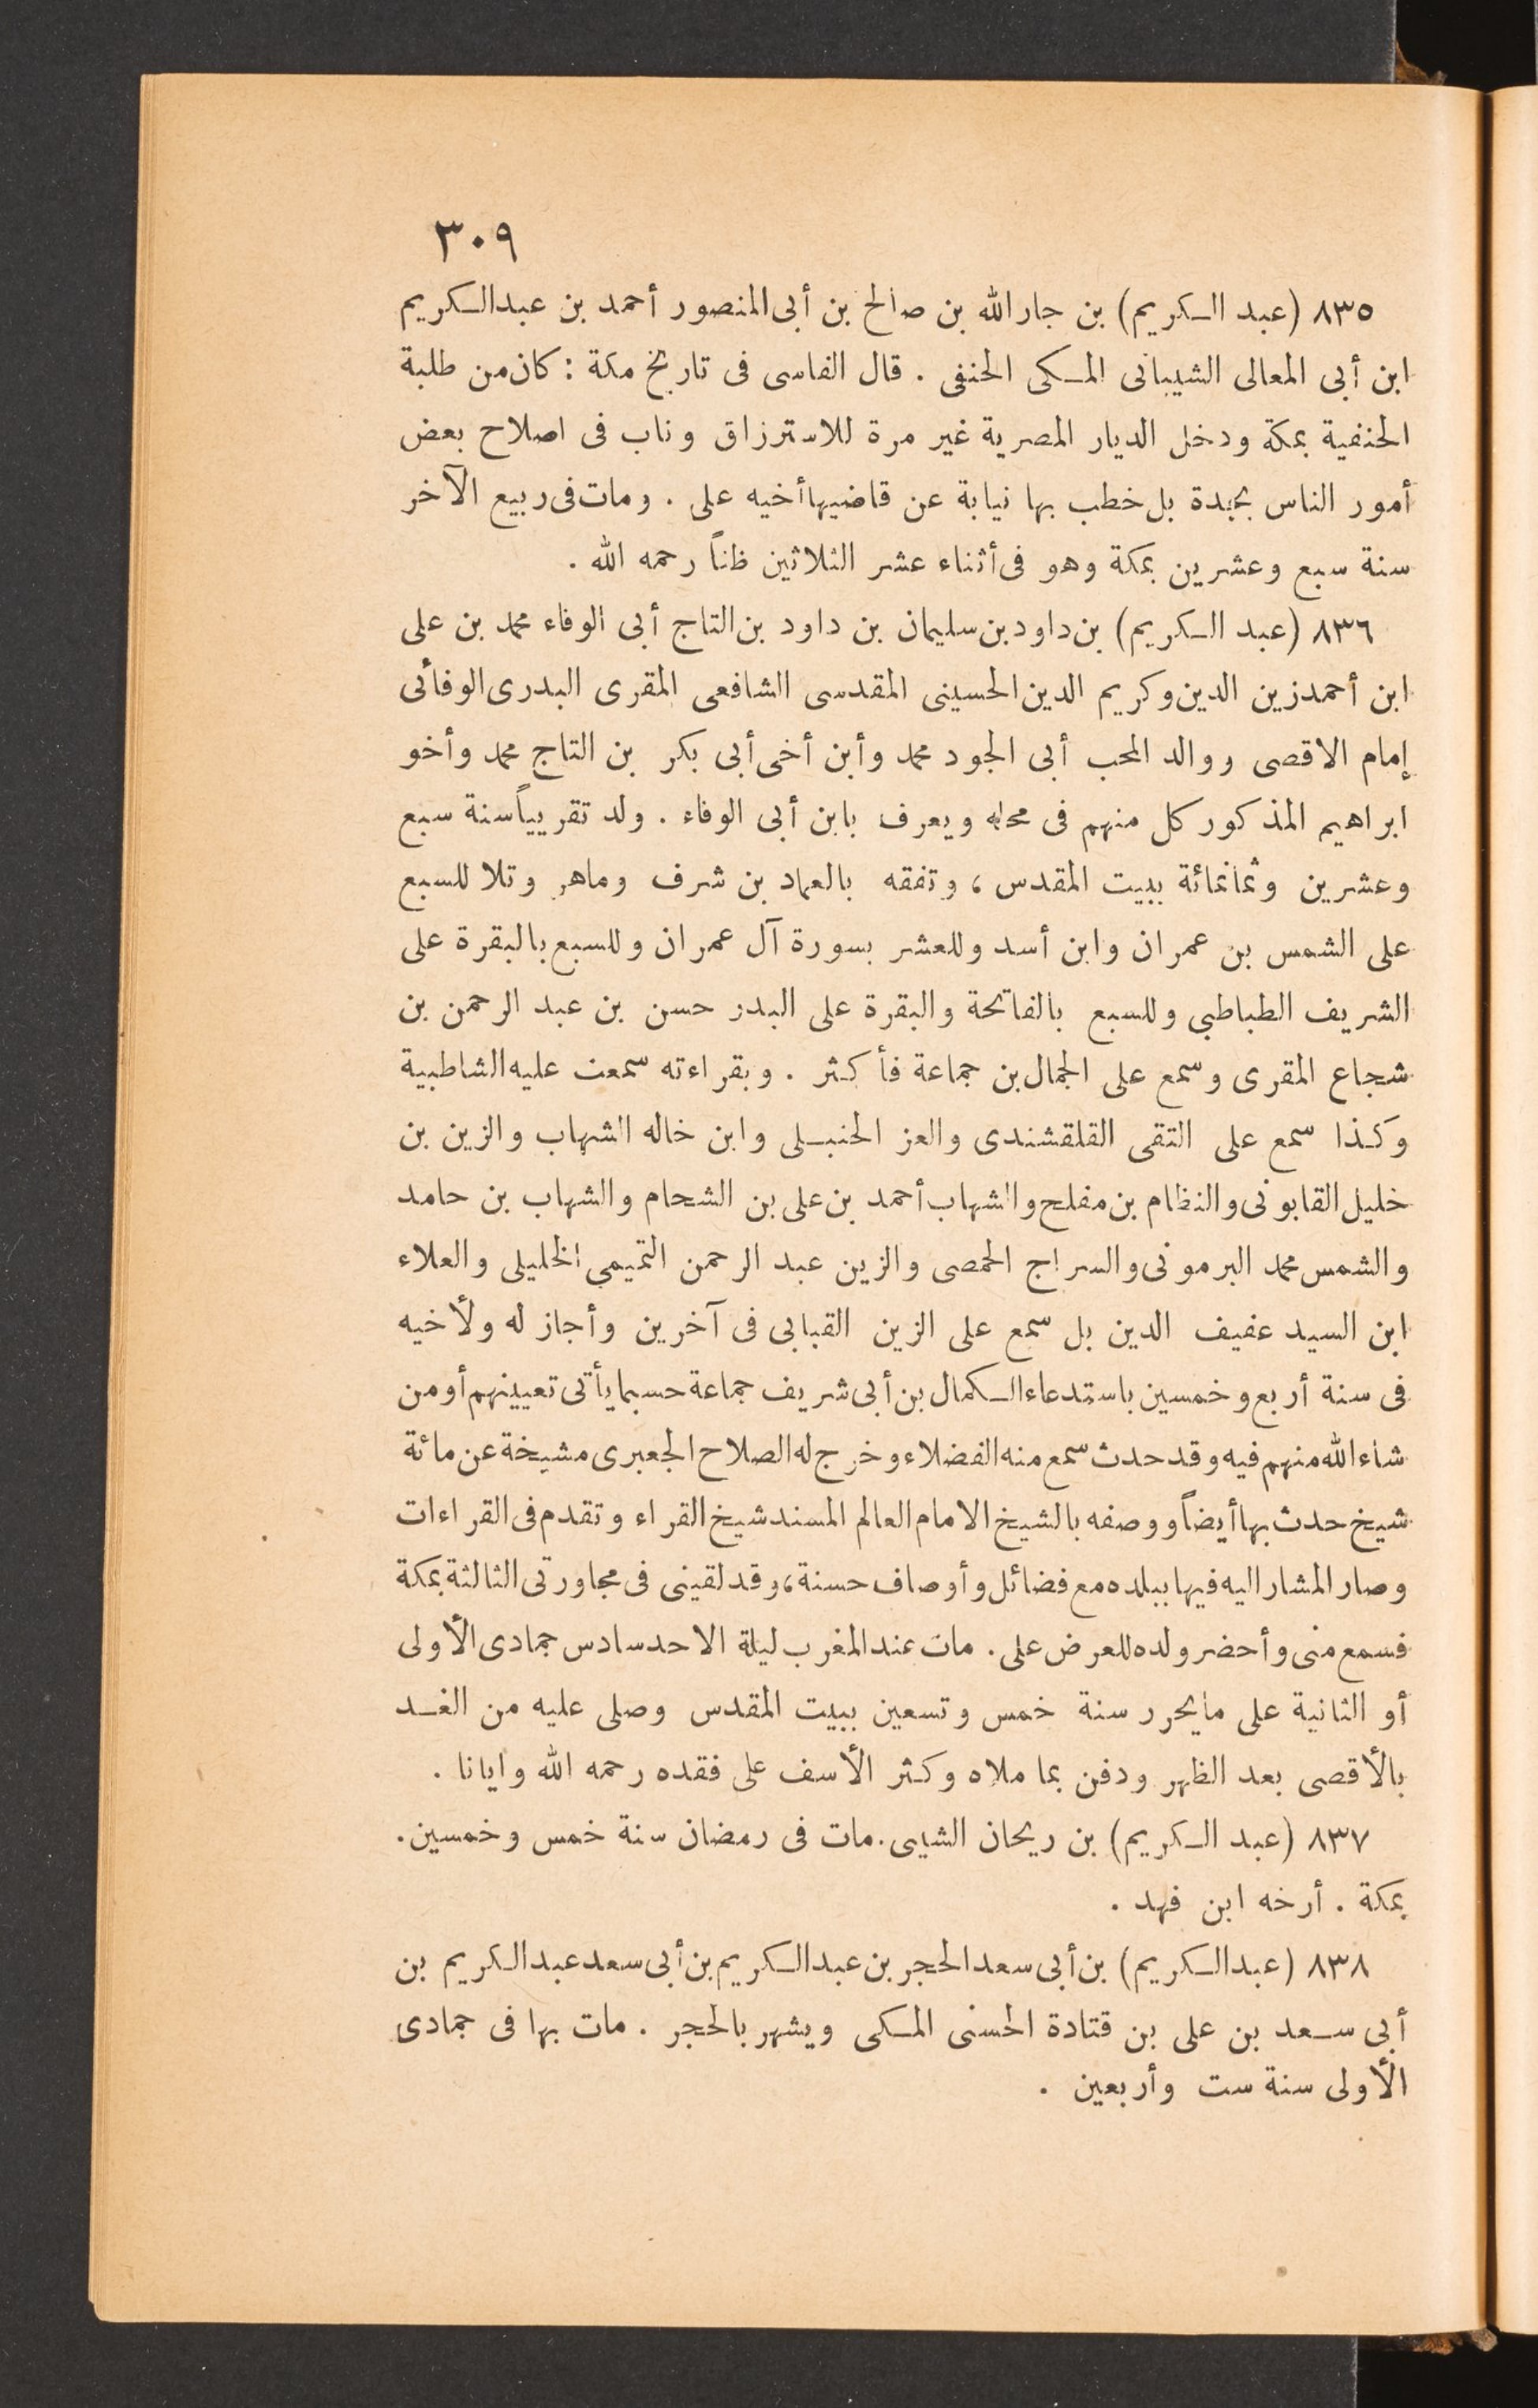 ٣٠٩
٨٣٥ (عبد الكريم) بن جار الله بن صالح بن أبى المنصور أحمد بن عبد الكريم
ابن أبى المعالى الشيبانى المكى الحنفى . قال الفاسى فى تاريخ مكة : كان من طلبة
الحنفية بمكة ودخل الديار المصرية غير مرة للاسترزاق وناب فى اصلاح بعض
أمور الناس بجدة بل خطب بها نيابة عن قاضيها أخيه على . ومات فى ربيع الآخر
سنة سبع وعشرين بمكة وهو فى أثناء عشر الثلاثين ظناً رحمه الله .
٨٣٦ (عبد الكريم) بن داود بن سليمان بن داود بن التاج أبى الوفاء محمد بن على
ابن أحمد زين الدين وكريم الدين الحسينى المقدسى الشافعى المقرى البدرى الوفائى
إمام الاقصى ووالد المحب أبى الجود محمد وأبن أخى أبى بكر بن التاج محمد وأخو
ابراهيم المذكور كل منهم فى محله ويعرف بابن أبى الوفاء . ولد تقريباً سنة سبع
وعشرين وثمانمائة ببيت المقدس ، وتفقه بالعماد بن شرف وماهر وتلا للسبع
على الشمس بن عمران وابن أسد وللعشر بسورة آل عمران وللسبع بالبقرة على
الشريف الطباطبى وللسبع بالفاتحة والبقرة على البدر حسن بن عبد الرحمن بن
شجاع المقرى وسمع على الجمال بن جماعة فأكثر . وبقراءته سمعت عليه الشاطبية
وكذا سمع على التقى القلقشندى والعز الحنبلى وابن خاله الشهاب والزين بن
خليل القابونى والنظام بن مفلح والشهاب أحمد بن على بن الشحام والشهاب بن حامد
والشمس محمد البرمونى والسراج الحمصى والزين عبد الرحمن التميمى الخليلى والعلاء
ابن السيد عفيف الدين بل سمع على الزين القبابى فى آخرين وأجاز له ولأخيه
فى سنة أربع وخمسين باستدعاء الكمال بن أبى شريف جماعة حسبما يأتى تعيينهم أو من
شاء الله منهم فيه وقد حدث سمع منه الفضلاء وخرج له الصلاح الجعبرى مشيخة عن مائة
شيخ حدث بها أيضاً ووصفه بالشيخ الامام العالم المسند شيخ القراء وتقدم فى القراءات
وصار المشار اليه فيها ببلده مع فضائل وأوصاف حسنة ، وقد لقينى فى مجاورتى الثالثة بمكة
فسمع منى وأحضر ولده للعرض على . مات عند المغرب ليلة الاحد سادس جمادى الأولى
أو الثانية على مايحرر سنة خمس وتسعين ببيت المقدس وصلى عليه من الغد
بالأقصى بعد الظهر ودفن بما ملاه وكثر الأسف على فقده رحمه الله وايانا .
٨٣٧ (عبد الكريم) بن ريحان الشيبى . مات فى رمضان سنة خمس وخمسين .
بمكة . أرخه ابن فهد .
٨٣٨ (عبد الكريم) بن أبى سعد الحجر بن عبد الكريم بن أبى سعد عبد الكريم بن
أبى سعد بن على بن قتادة الحسنى المكى ويشهر بالحجر . مات بها فى جمادى
الأولى سنة ست وأربعين .